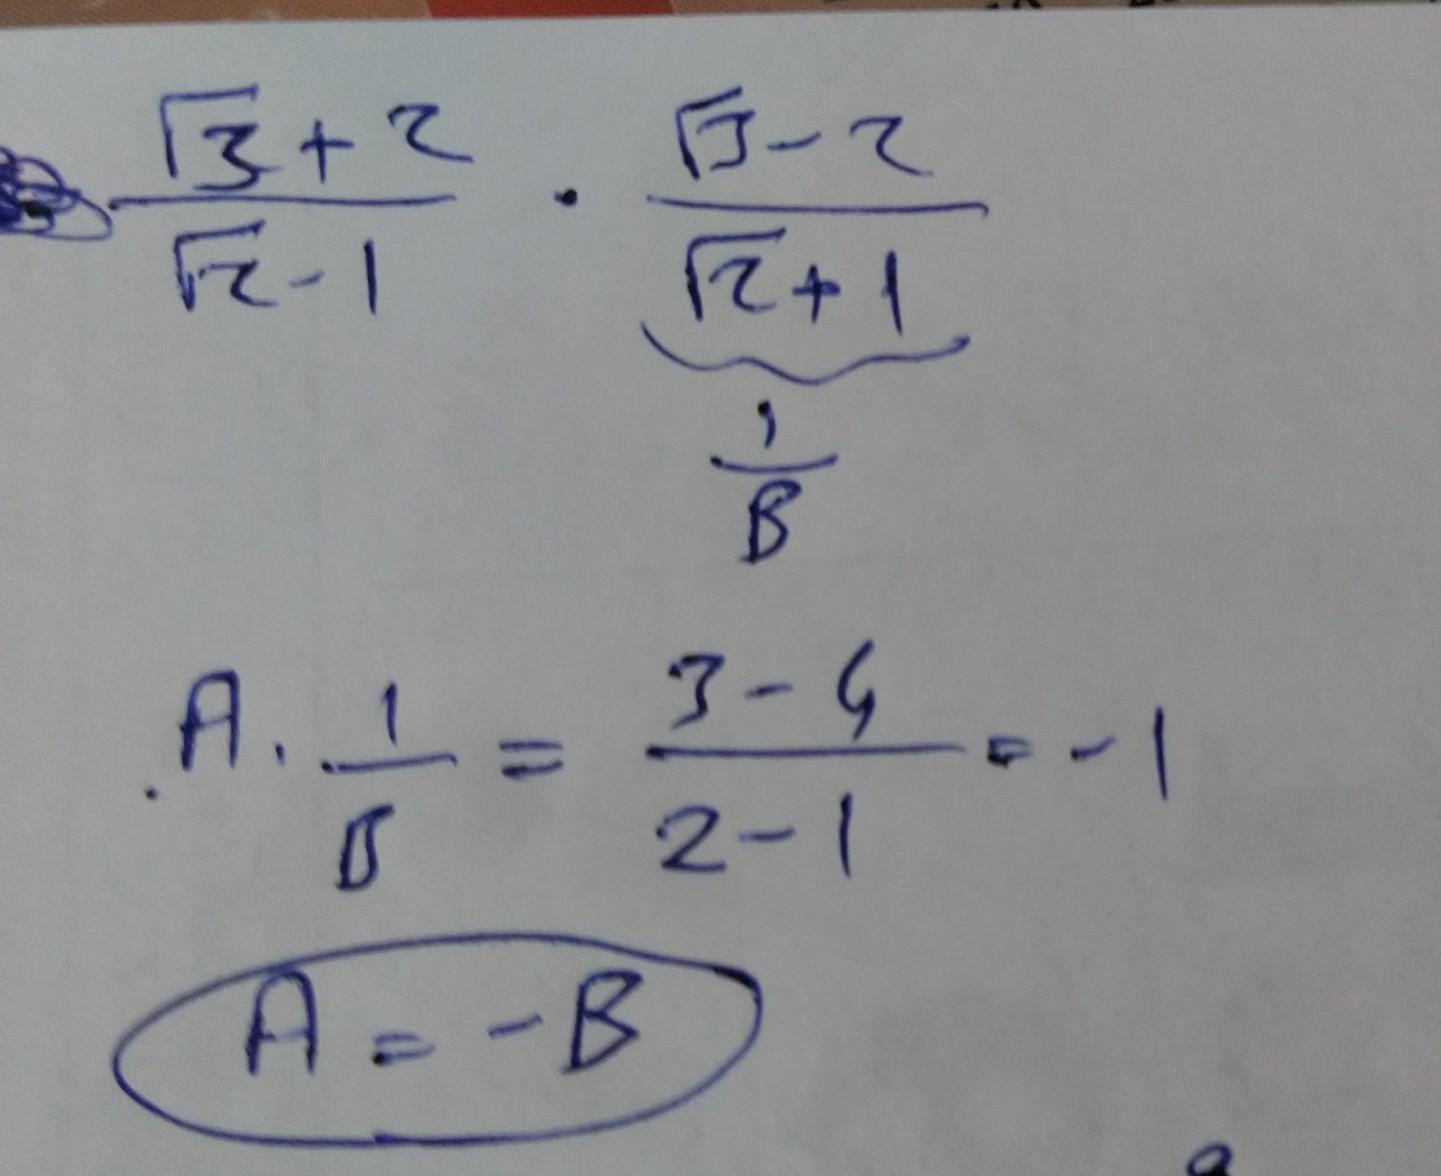 √3 + 2 / √2 - 1 · √3 - 2 / √2 + 1
1 / B
A · 1 / B = 3 - 4 / 2 - 1 = - 1
A = - B